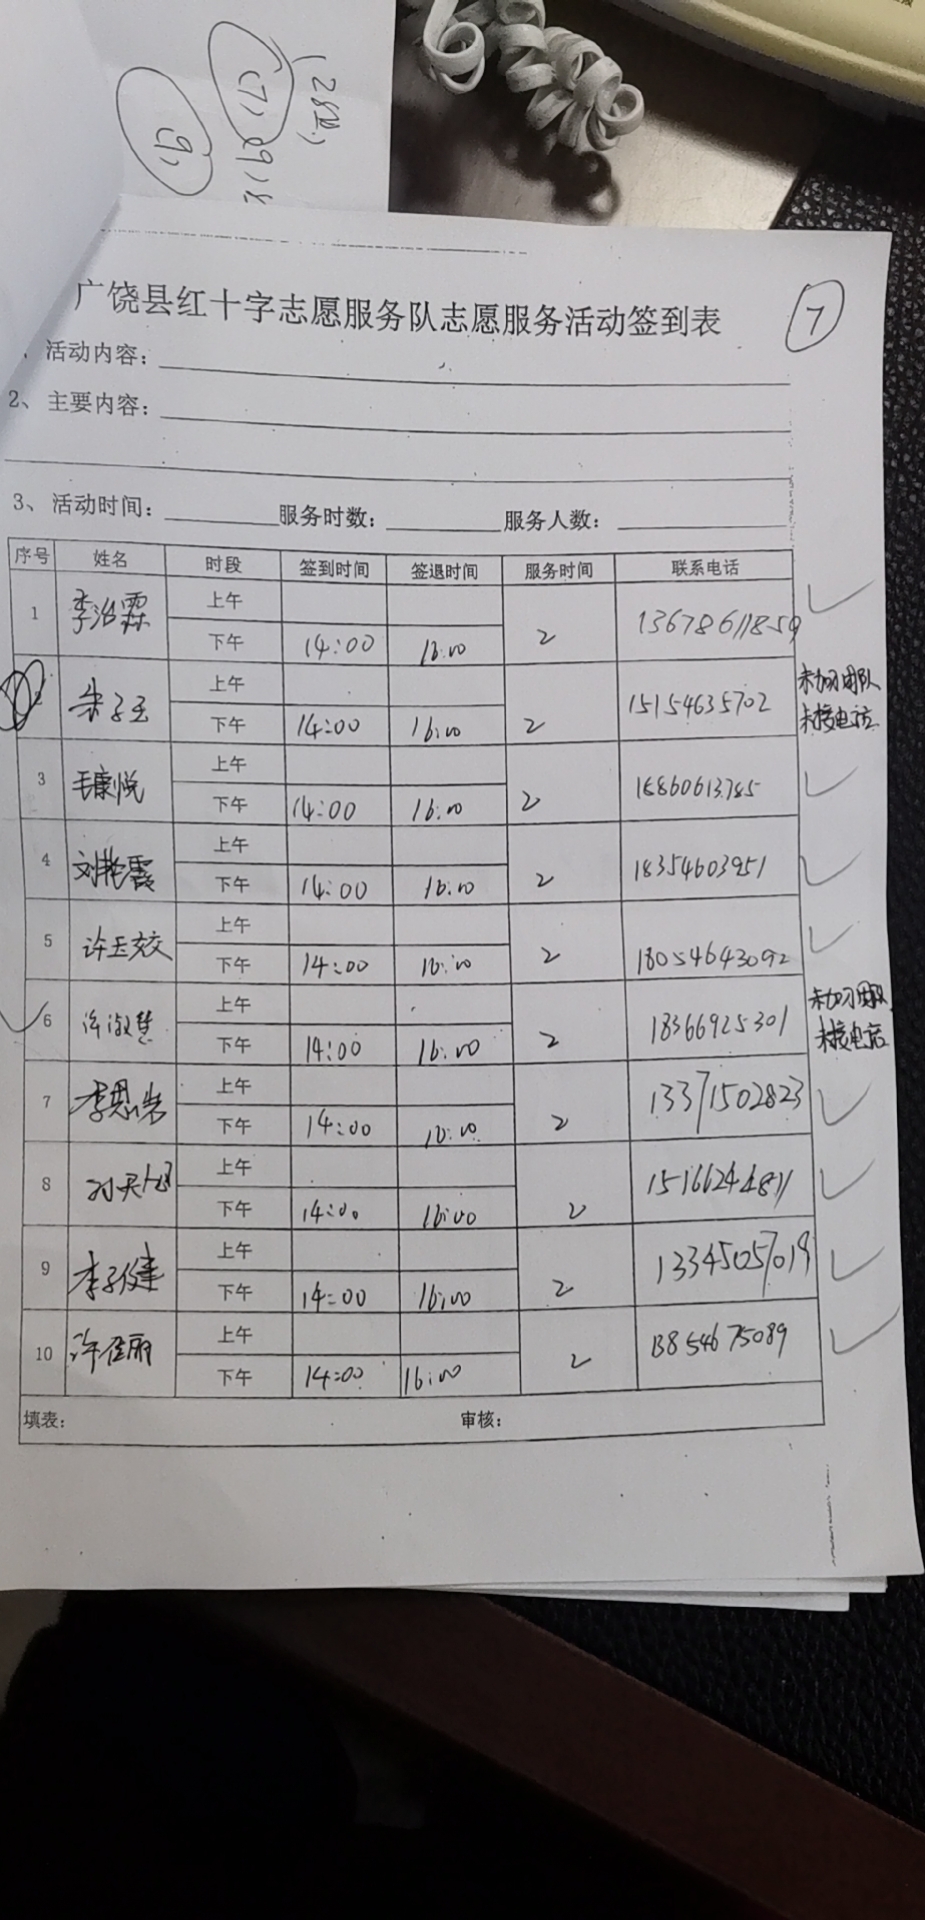 (28)
(7) 29
(9)
广饶县红十字志愿服务队志愿服务活动签到表
7
、活动内容：
2、主要内容：
3、活动时间： 服务时数： 服务人数：
序号 姓名 时段 签到时间 签退时间 服务时间 联系电话
1 李治霖 上午
下午 14:00 16:00 2 13678611859
2 朱子玉 上午
下午 14:00 16:00 2 15154635702 未加习团队
未接电话
3 毛康悦 上午
下午 14:00 16:00 2 18860613785
4 刘艳霞 上午
下午 14:00 16:00 2 18354603951
5 许玉姣 上午
下午 14:00 16:00 2 18054643092
6 许淑慧 上午
下午 14:00 16:00 2 18366925301 未加习团队
未接电话
7 李思 上午
下午 14:00 16:00 2 13371502823
8 刘天 上午
下午 14:00 16:00 2 15166244811
9 李子健 上午
下午 14:00 16:00 2 13345057019
10 许佳丽 上午
下午 14:00 16:00 2 13854675089
填表： 审核：